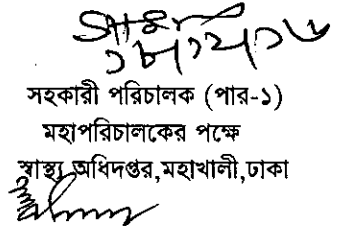 সহকারী পরিচালক (পার-১)
মহাপরিচালকের পক্ষে
স্বাস্থ্য অধিদপ্তর,মহাখালী,ঢাকা